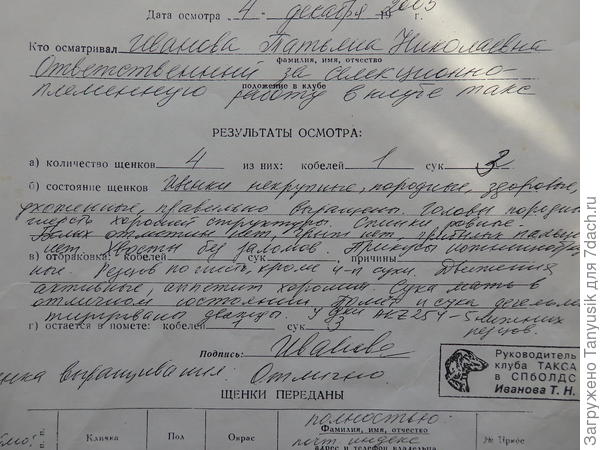 Дата осмотра 4 - декабря 19 2005 г.
Кто осматривал Иванова Татьяна Николаевна
фамилия, имя, отчество
Ответственный за селекционно-
положение в клубе
племенную работу в клубе такс
РЕЗУЛЬТАТЫ ОСМОТРА:
а) количество щенков 4 из них: кобелей 1 сук 3
б) состояние щенков Щенки некрупные, породные, здоровые,
ухоженные, правильно выращены. Головы породны
шерсть хорошей структуры. Спинки ровные.
Белых отметин нет
нет. Хвосты без заломов. Прикусы ножницеобраз
в) отбраковка: кобелей сук причины
ные. Резцов по шесть, кроме 4-й суки. Движения
активные, аппетит хороший. Сука мать в
отличном состоянии. Помет и сука дегельмин
тизированы дважды. У суки AKZ 254 - 5 нижних
резцов.
г) остается в помете: кобелей сук 3
Подпись: Иванова
Руководитель
клуба ТАКСА
в СПбОЛДС
Иванова Т. Н.
выращивания: Отлично
ЩЕНКИ ПЕРЕДАНЫ
Кличка Пол Окрас полностью: Фамилия, имя, отчество № Прное
почт. индекс
адрес и телефон владельца
Загружено Tanyusik для 7dach.ru